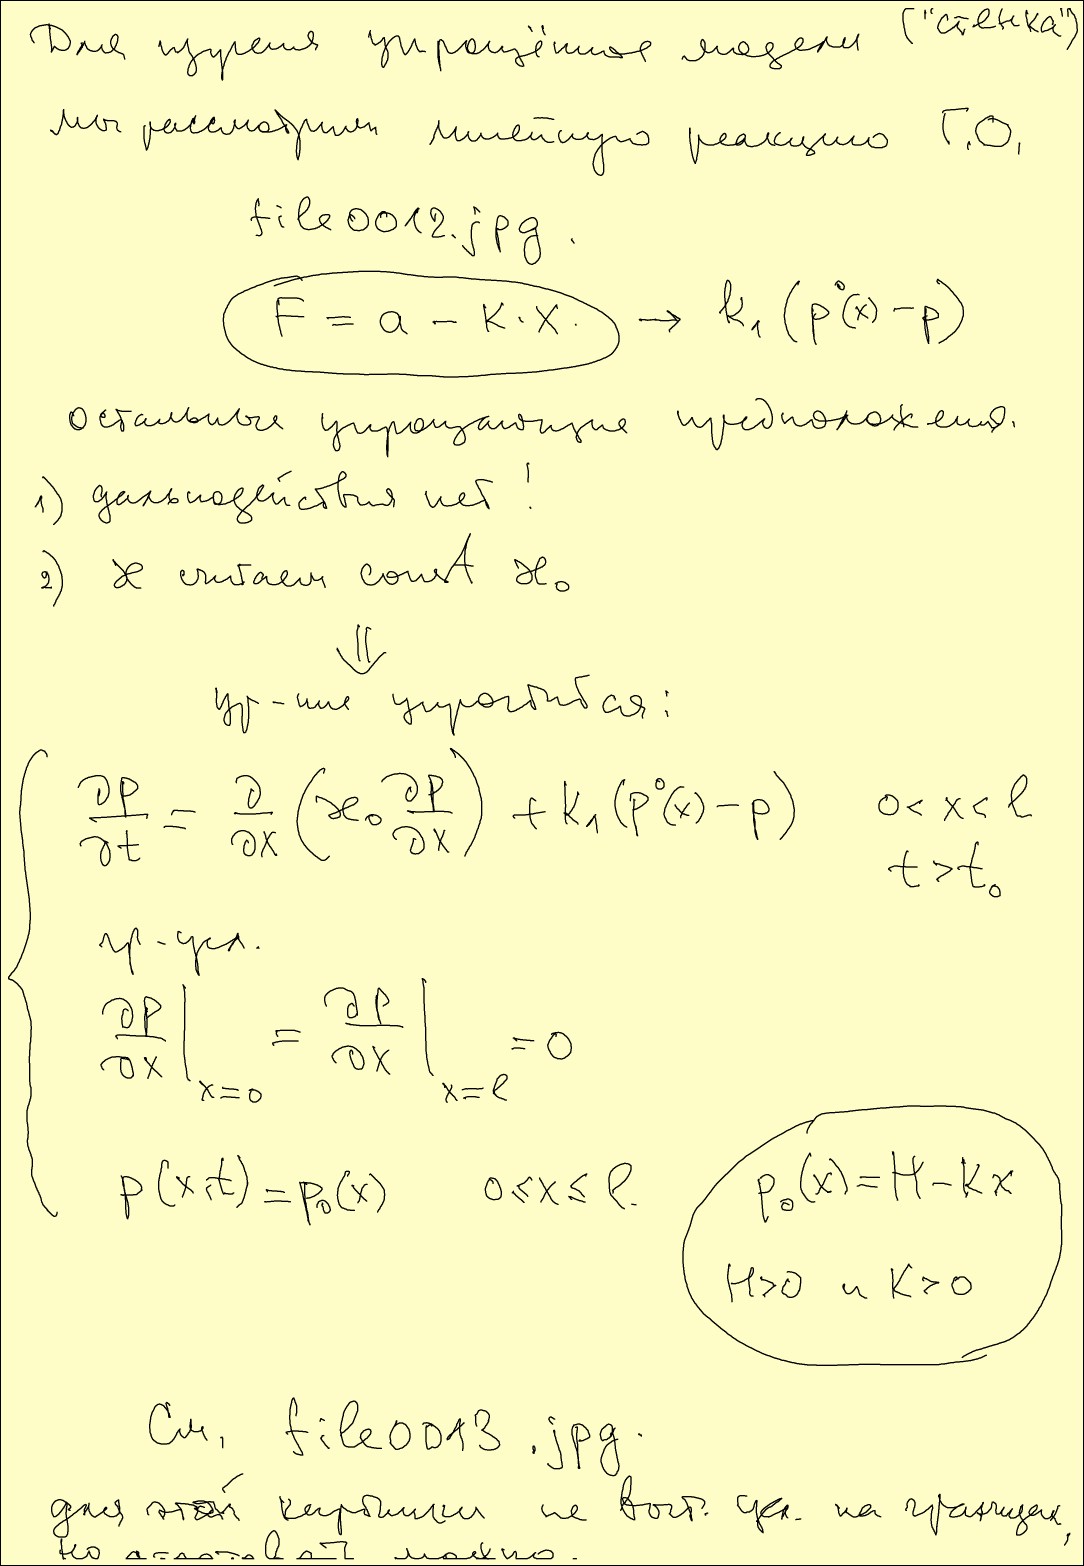 Для изучения упрощённой модели ("стенка")
мы рассмотрим линейную реакцию Г.О.
file0012.jpg.
F = a - K·X. → k₁(p⁰(x) - p)
остальные упрощающие предположения.
1) дальнодействия нет!
2) ϰ считаем const ϰ₀
⇓
ур-ние упростится:
∂p/∂t = ∂/∂x (ϰ₀ ∂p/∂x) + k₁(p⁰(x) - p) 0 < x < l
t > t₀
гр-усл.
∂p/∂x |x=0 = ∂p/∂x |x=l = 0
p(x,t) = p₀(x) 0 ≤ x ≤ l.
p₀(x) = H - Kx
H>0 и K>0
См. file0013.jpg.
для этой картинки не вып. усл. на границах,
но можно.